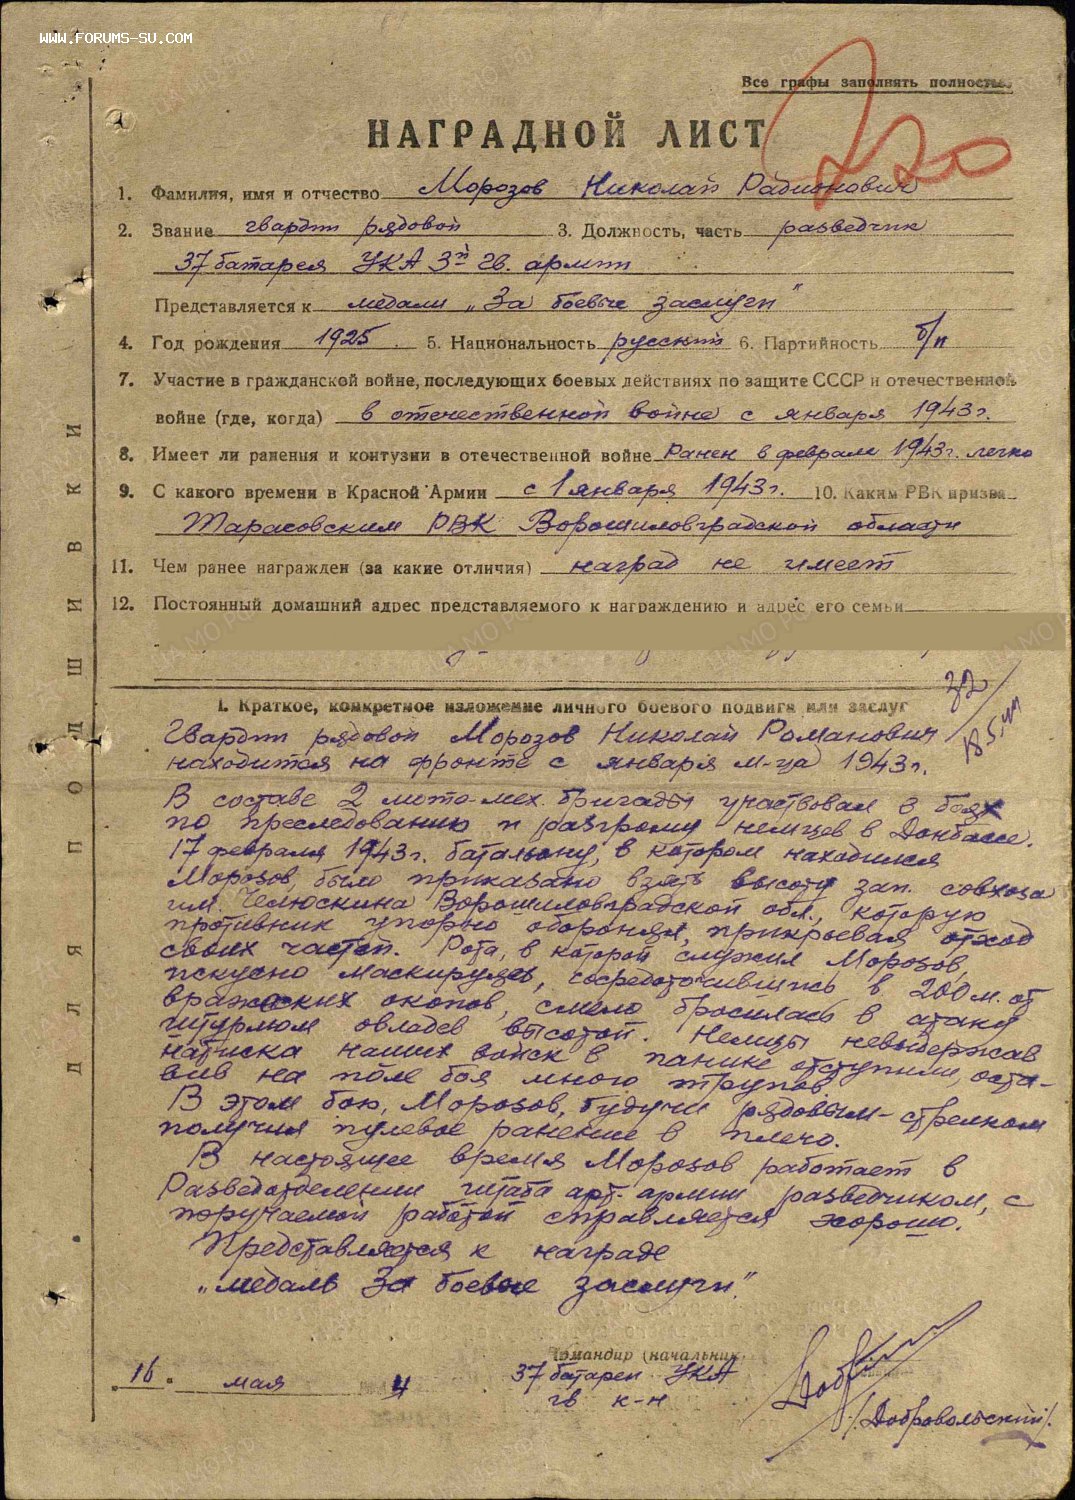 WWW.FORUMS-SU.COM
Все графы заполнять полностью.
220
НАГРАДНОЙ ЛИСТ
1. Фамилия, имя и отчество Морозов Николай Радионович
2. Звание гвардии рядовой 3. Должность, часть разведчик
37 батарея УКА 3й гв. армии
Представляется к медали „За боевые заслуги"
4. Год рождения 1925 5. Национальность русский 6. Партийность б/п
7. Участие в гражданской войне, последующих боевых действиях по защите СССР и отечественной
войне (где, когда) в отечественной войне с января 1943г.
8. Имеет ли ранения и контузии в отечественной войне Ранен в феврале 1943г. легко
9. С какого времени в Красной Армии с 1 января 1943г. 10. Каким РВК призва
Тарасовским РВК Ворошиловградской области
11. Чем ранее награжден (за какие отличия) наград не имеет
12. Постоянный домашний адрес представляемого к награждению и адрес его семьи
32
18.5.44
I. Краткое, конкретное изложение личного боевого подвига или заслуг
Гвардии рядовой Морозов Николай Романович
находится на фронте с января м-ца 1943г.
В составе 2 мото-мех. бригады участвовал в боях
по преследованию и разгрому немцев в Донбассе.
17 февраля 1943г. батальону, в котором находился
Морозов, было приказано взять высоту зап. совхоза
им. Челюскина Ворошиловградской обл., которую
противник упорно оборонял, прикрывая отход
своих частей. Рота, в которой служил Морозов,
искусно маскируясь, сосредоточившись в 200 м. от
вражеских окопов, смело бросилась в атаку
штурмом овладев высотой. Немцы невыдержав
натиска наших войск в панике отступили, оста-
вив на поле боя много трупов.
В этом бою, Морозов, будучи рядовым-стрелком
получил пулевое ранение в плечо.
В настоящее время Морозов работает в
Разведотделении штаба арт. армии разведчиком, с
поручаемой работой справляется хорошо.
Представляется к награде
„медаль За боевые заслуги".
Командир (начальник
37 батареи УКА
гв к-н
/Добровольский/.
16 мая 4
ДЛЯ ПОДШИВКИ